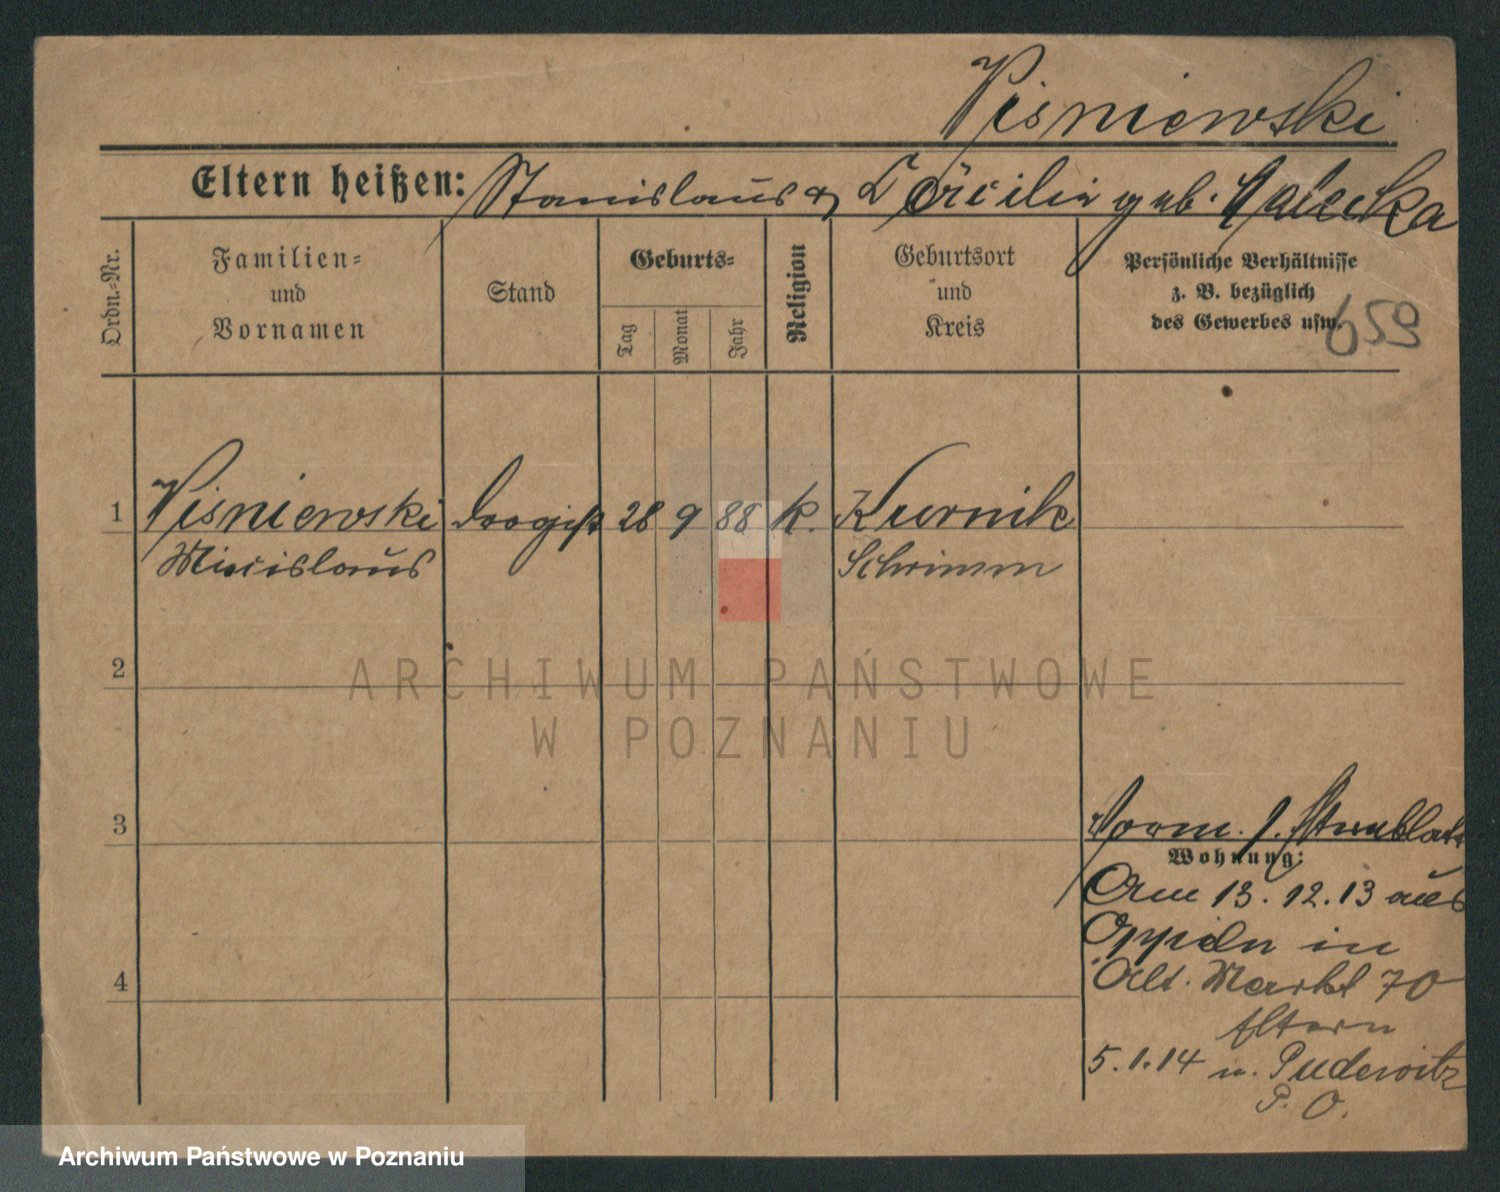 Wisniewski
Eltern heißen: Stanislaus & Cäcilia geb.
Ordn.-Nr.
Familien-
und
Vornamen
Stand
Geburts-
Tag
Monat
Jahr
Religion
Geburtsort
und
Kreis
Persönliche Verhältnisse
z. B. bezüglich
des Gewerbes usw.
659
1 Wisniewski Drogist 28 9 88 k. Kurnik
Miecislaus Schrimm
2
ARCHIWUM PAŃSTWOWE
W POZNANIU
3
Wohnung:
Am 13.12.13 aus
Oppeln in
Alt. Markt 70
Eltern
5.1.14 n. Pudewitz
P. O.
4
Archiwum Państwowe w Poznaniu